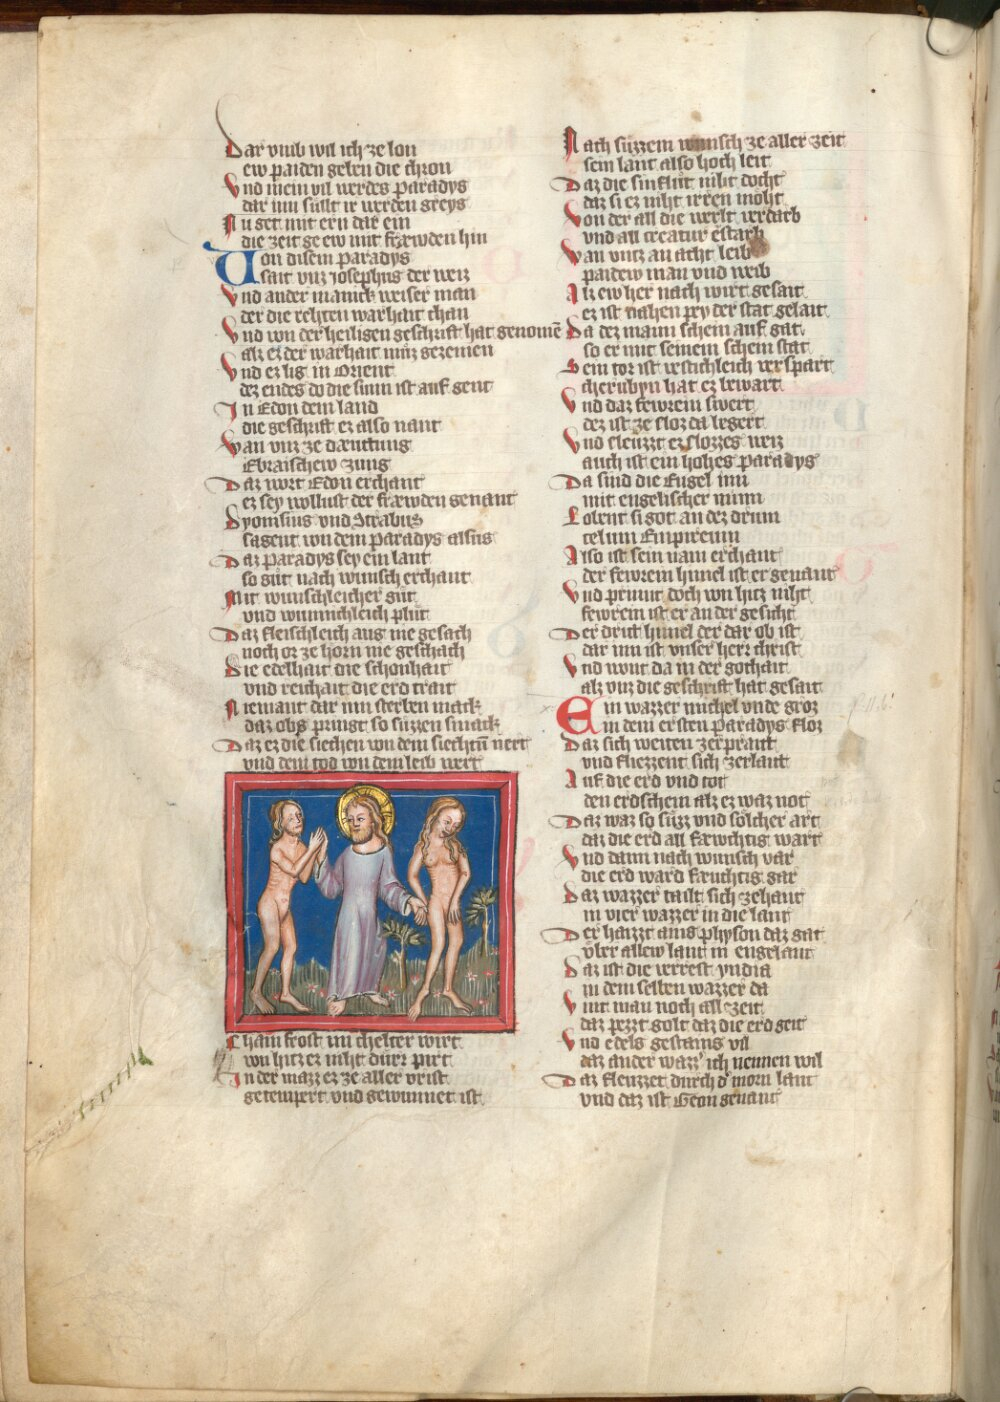 Dar vmb wil ich ze lon
ew paiden geben die chron
Vnd mein vil werdes paradys
dar inn sullt ir werden greys
Nu get mit ern dar ein
die zeit ge ew mit fræwden hin
Von disem paradys
sait vnz Josephus der weiz
Vnd ander manick weiser man
der die rehten warhait chan
Vnd von der heiligen geschrift hat genomē
alz ez der warhait muz gezemen
Vnd ez lig in Orient
dez endes do die sunn ist auf gent
In Edon dem land
die geschrift ez also nant
Wan vnz ze dæuttung
Ebraischew zung
Daz wort Edon erchant
ez sey wollust der fræwden genant
Dyonisius vnd Strabus
sagent von dem paradys alsus
Daz paradys sey ein lant
so gut nach wunsch erchant
Mit wunschleicher gut
vnd wunnichleich plut
Daz fleischleich aug nie gesach
noch or ze horn nie geschach
Die edelhait die schonhait
vnd reichait die erd trait
Niemant dar inn sterben mack
daz obs pringt so suzzen smack
Daz ez die siechen von dem siechtū nert
vnd dem tod von dem leib wert
Chain frost im chelter wirt
von hitz ez niht durr pirt
In der mazz ez ze aller vrist
getempert vnd gewunnet ist
Nach suzzem wunsch ze aller zeit
sein lant also hoch leit
Daz die sinflut niht docht
daz si ez niht irren moht
Von der all die werlt verdarb
vnd all creatur erstarb
Wan vntz an acht leib
paidew man vnd weib
Alz ew her nach wirt gesait
ez ist nahen pey der stat gelait
Da dez mann schein auf gat
so er mit seinem schein stat
Sein tor ist vestichleich verspart
cherubyn hat ez bewart
Vnd daz fewrein swert
dez ist ze sloz da legert
Vnd fleuzzt ez slozzes weiz
auch ist ein hohes paradys
Da sind die Engel inn
mit engelischer minn
Lobent si got an dez drum
celum Empireum
Also ist sein nam erchant
der fewrein himel ist er genant
Vnd prinnt doch von hitz niht
fewrein ist er an der gesicht
Der drit himel der dar ob ist
dar inn ist vnser herr christ
Vnd wont da in der gothait
alz vnz die geschrift hat gesait
Ein wazzer michel vnde groz
in dem ersten paradys floz
Daz sich weiten zerprait
vnd fliezzent sich zerlait
Auf die erd vnd tot
den erdschein alz ez waz not
Daz waz so suzz vnd solcher art
daz die erd all fæwchtig wart
Vnd dann nach wunsch var
die erd ward fruchtig gar
Daz wazzer tailt sich zehant
in vier wazzer in die lant
Der haizzt ains physon daz gat
vber allew lant in engelant
Daz ist die verrest yndia
in dem selben wazzer da
Vint man noch all zeit
daz pezzt golt daz die erd geit
Vnd edels gestains vil
daz ander wazz' ich nennen wil
Daz fleuzzet durch d' morn lant
vnd daz ist Geon genant